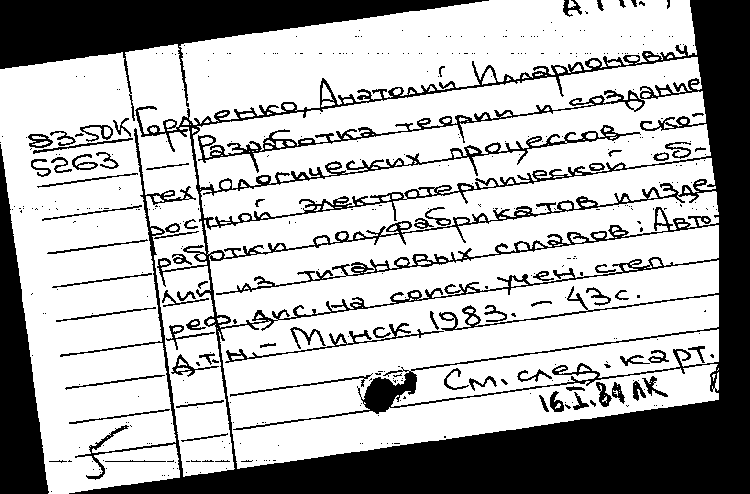 83-50К Гордиенко, Анатолий Илларионович.
5263 Разработка теории и создание
технологических процессов ско-
ростной электротермической об-
работки полуфабрикатов и изде-
лий из титановых сплавов: Авто-
реф. дис. на соиск. учен. степ.
д.т.н. – Минск, 1983. – 43 с.
См. след. карт.
16.I.84 ЛК
5